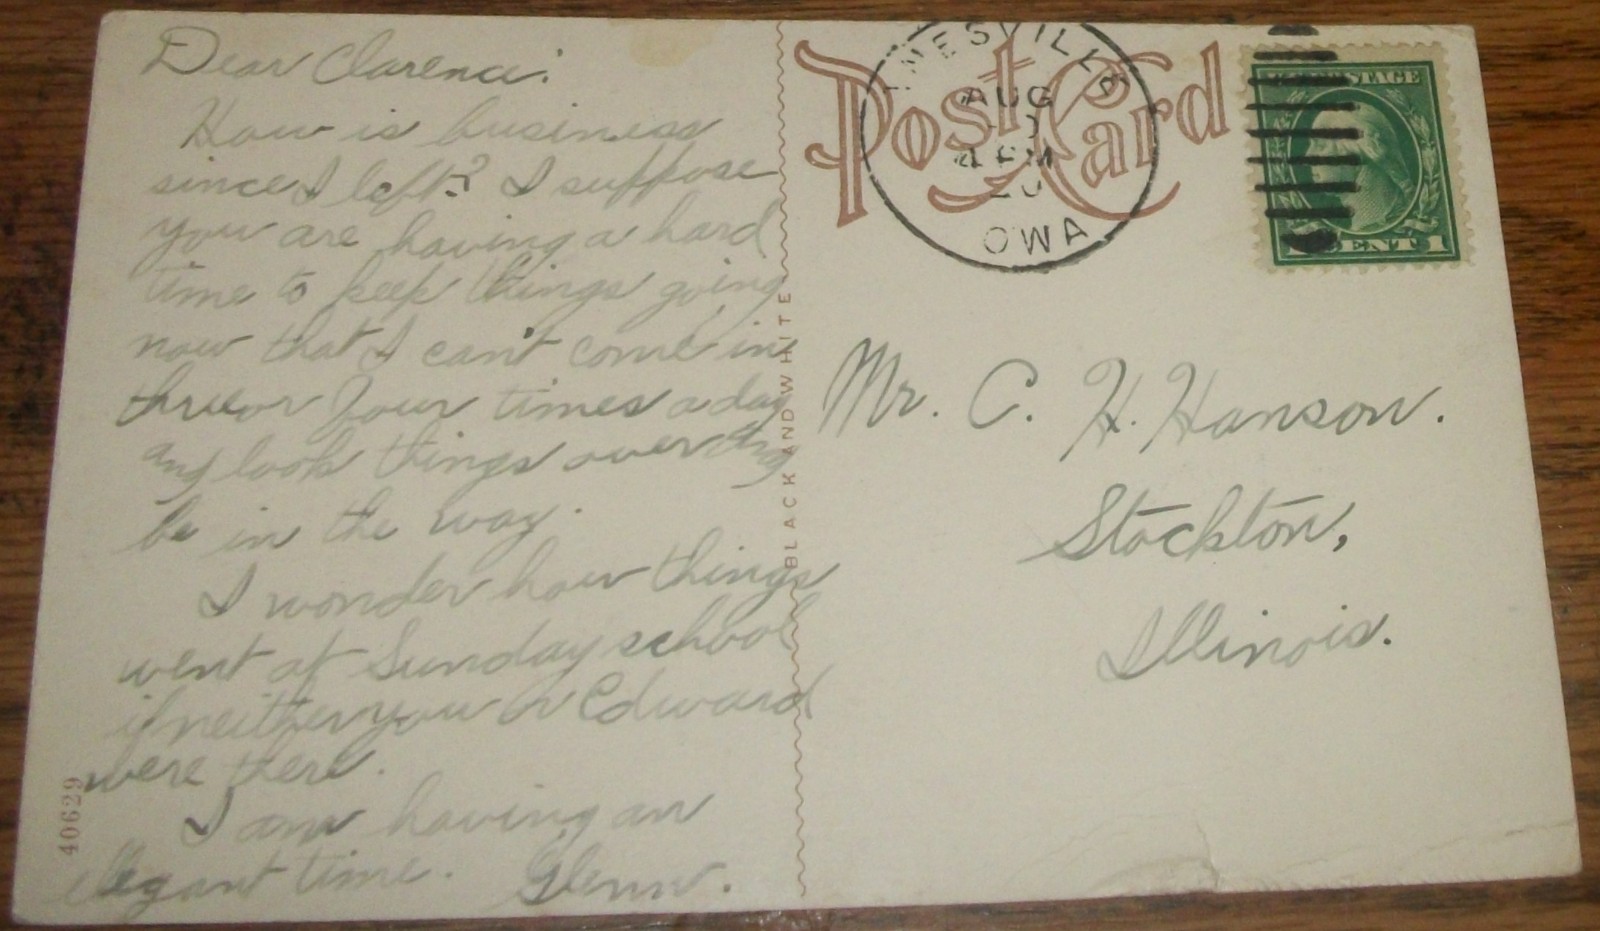 Dear Clarence:
How is business
since I left? I suppose
you are having a hard
time to keep things going
now that I can't come in
three or four times a day
and look things over and
be in the way.
I wonder how things
went at Sunday school
if neither you or Edward
were there.
I am having an
elegant time. Glenn.
40629
BLACK AND WHITE
Post Card
AUG
4 PM
20
OWA
POSTAGE
CENT 1
Mr. C. H. Hanson.
Stockton,
Illinois.